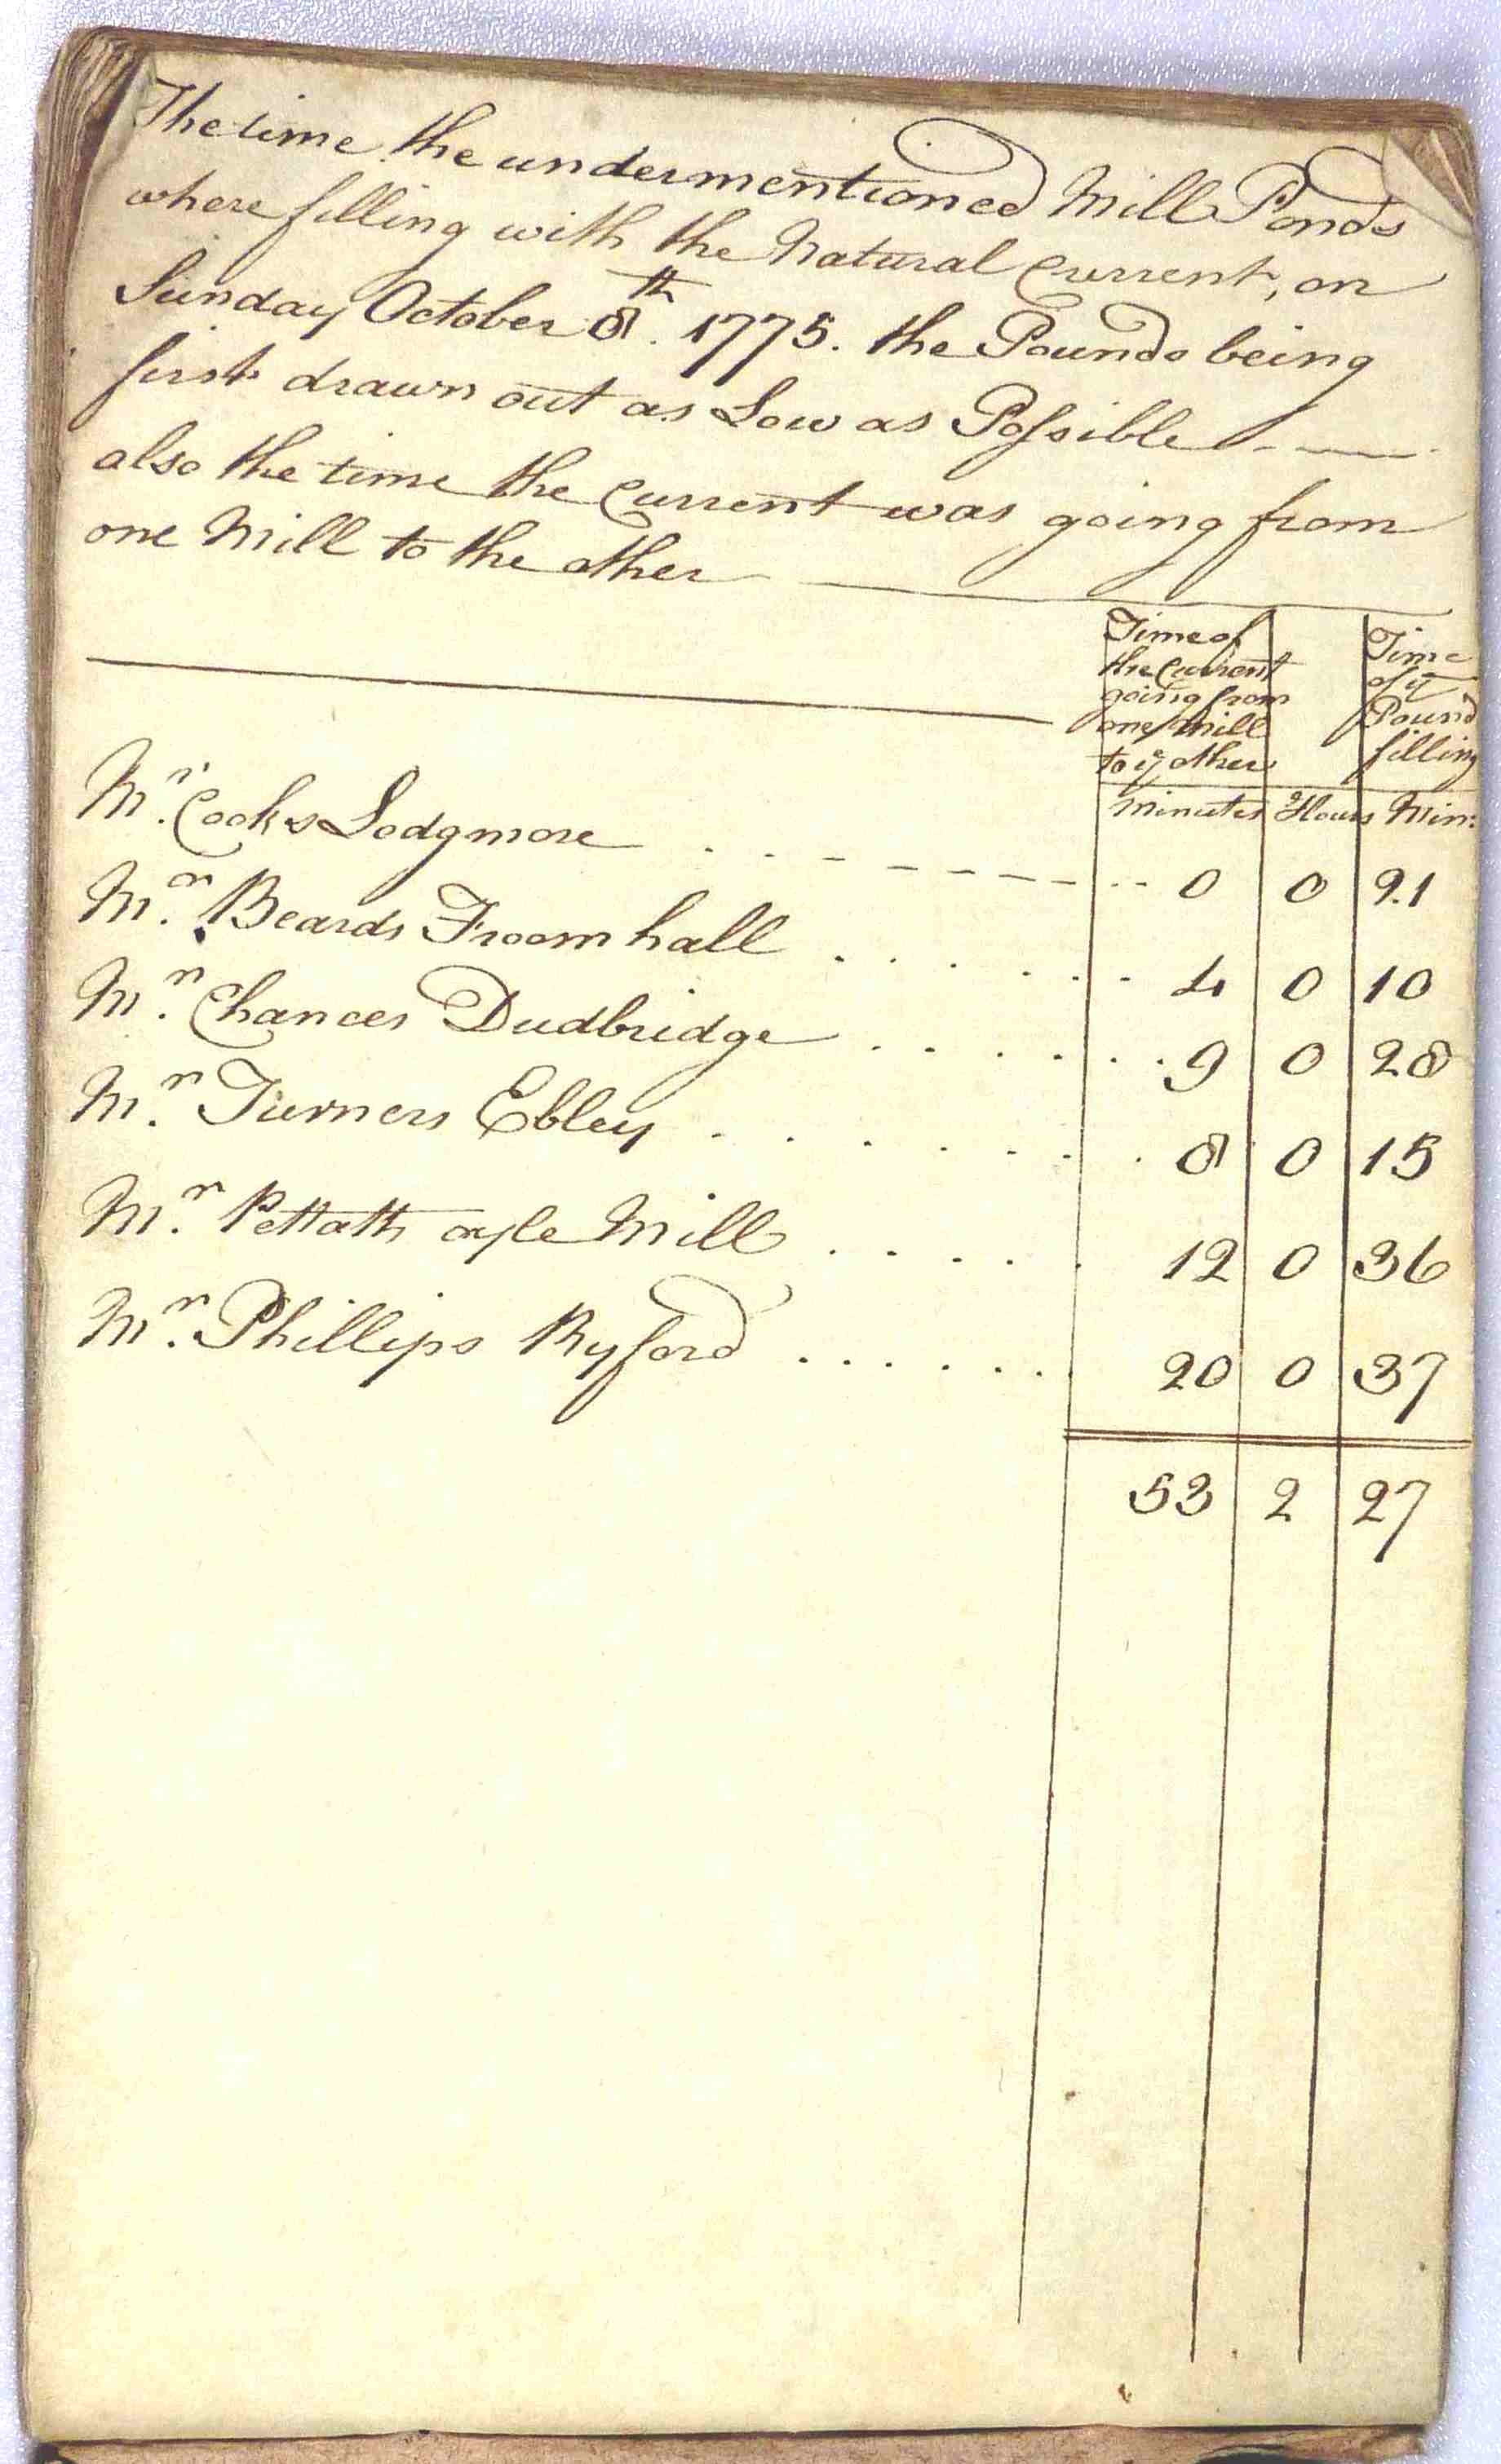 The time the undermentioned Mill Ponds
where filling with the Natural Current, on
Sunday October 8th. 1775. the Pounds being
first drawn out as Low as Possible
also the time the Current was going from
one Mill to the other
Time of the Current going from one Mill to ye other | Time of ye Pound filling
Minutes | Hours | Min:
Mr. Cooks Lodgmore . . - - - - - - - . . 0 | 0 | 21
Mr. Beards Froom hall . . . . . . . 4 | 0 | 10
Mr. Chances Dudbridge . . . . . . . 9 | 0 | 28
Mr. Turners Ebley . . . . . . . . 8 | 0 | 15
Mr. Pettatt ayle Mill . . . . . . 12 | 0 | 36
Mr. Phillips Ryford . . . . . . . 20 | 0 | 37
53 | 2 | 27